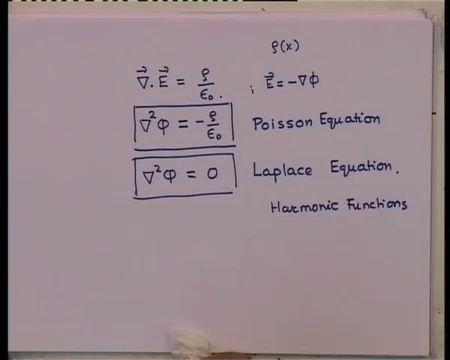 ρ(x)
∇⃗.E⃗ = ρ/ε₀. ; E⃗ = -∇φ
∇²φ = -ρ/ε₀ Poisson Equation
∇²φ = 0 Laplace Equation.
Harmonic Functions